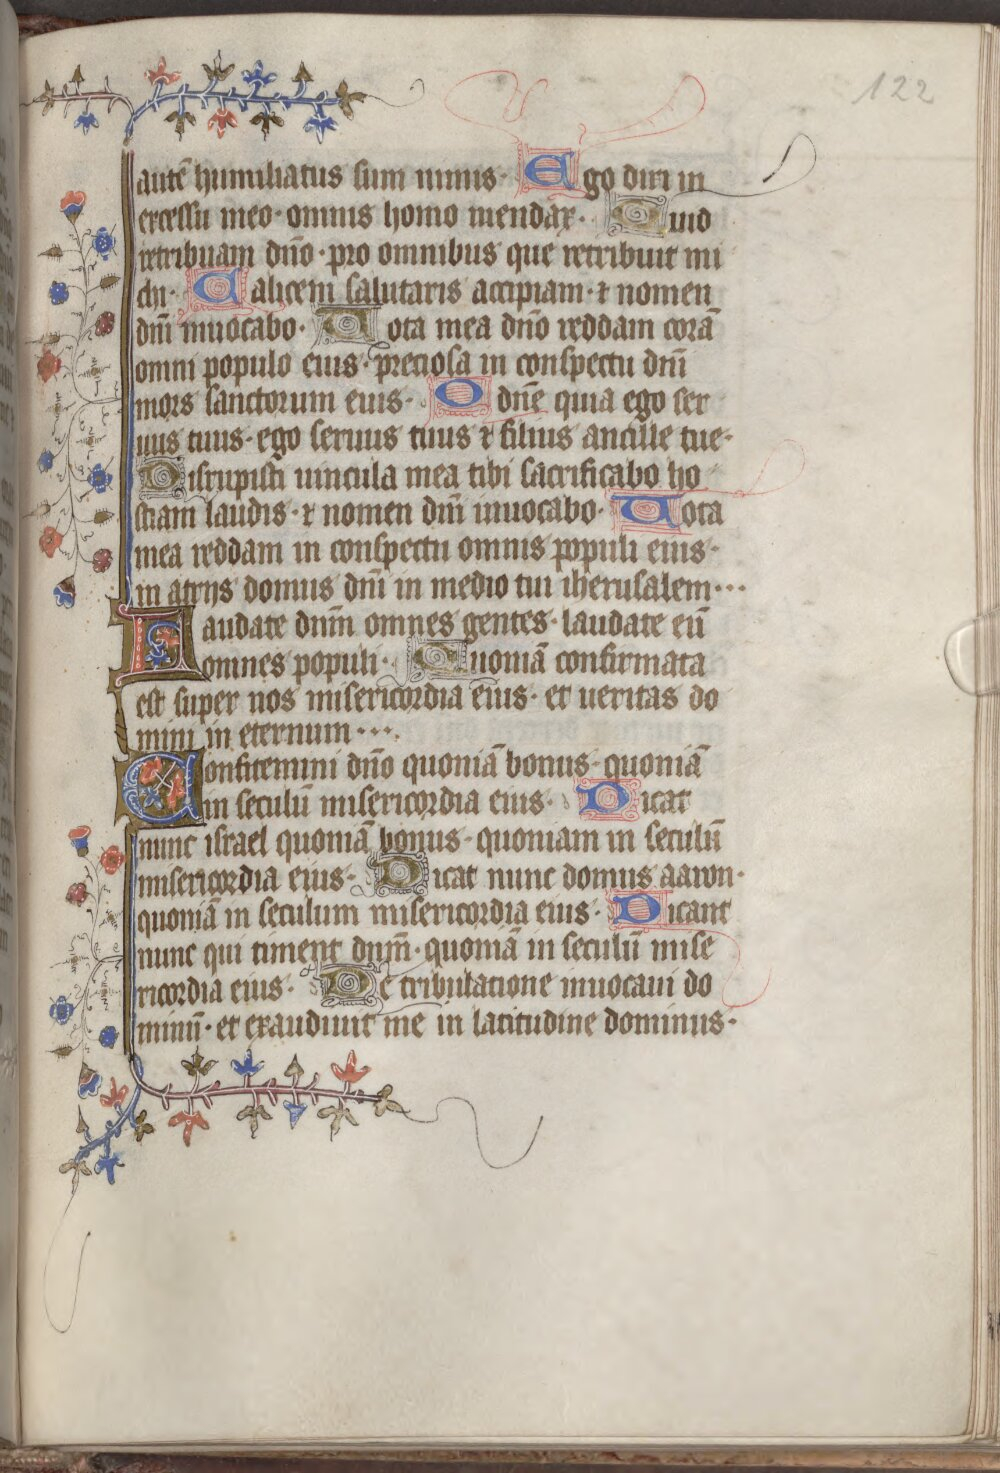 122
autē humiliatus sum nimis· Ego dixi in
excessu meo· omnis homo mendax· Quid
retribuam dn̄o· pro omnibus que retribuit mi
chi· Calicem salutaris accipiam· ⁊ nomen
dn̄i inuocabo· Uota mea dn̄o reddam corā
omni populo eius· preciosa in conspectu dn̄i
mors sanctorum eius· O dn̄e quia ego ser
uus tuus· ego seruus tuus ⁊ filius ancille tue·
Disrupisti uincula mea tibi sacrificabo ho
stiam laudis· ⁊ nomen dn̄i inuocabo· Uota
mea reddam in conspectu omnis populi eius·
in atriis domus dn̄i in medio tui iherusalem···
Laudate dn̄m omnes gentes· laudate eū
omnes populi· Quoniā confirmata
est super nos misericordia eius· et ueritas do
mini in eternum···
Confitemini dn̄o quoniā bonus· quoniā
in seculū misericordia eius· Dicat
nunc israel quoniā bonus· quoniam in seculū
misericordia eius· Dicat nunc domus aaron·
quoniā in seculum misericordia eius· Dicant
nunc qui timent dn̄m· quoniā in seculū mise
ricordia eius· De tribulacione inuocaui do
minū· et exaudiuit me in latitudine dominus·